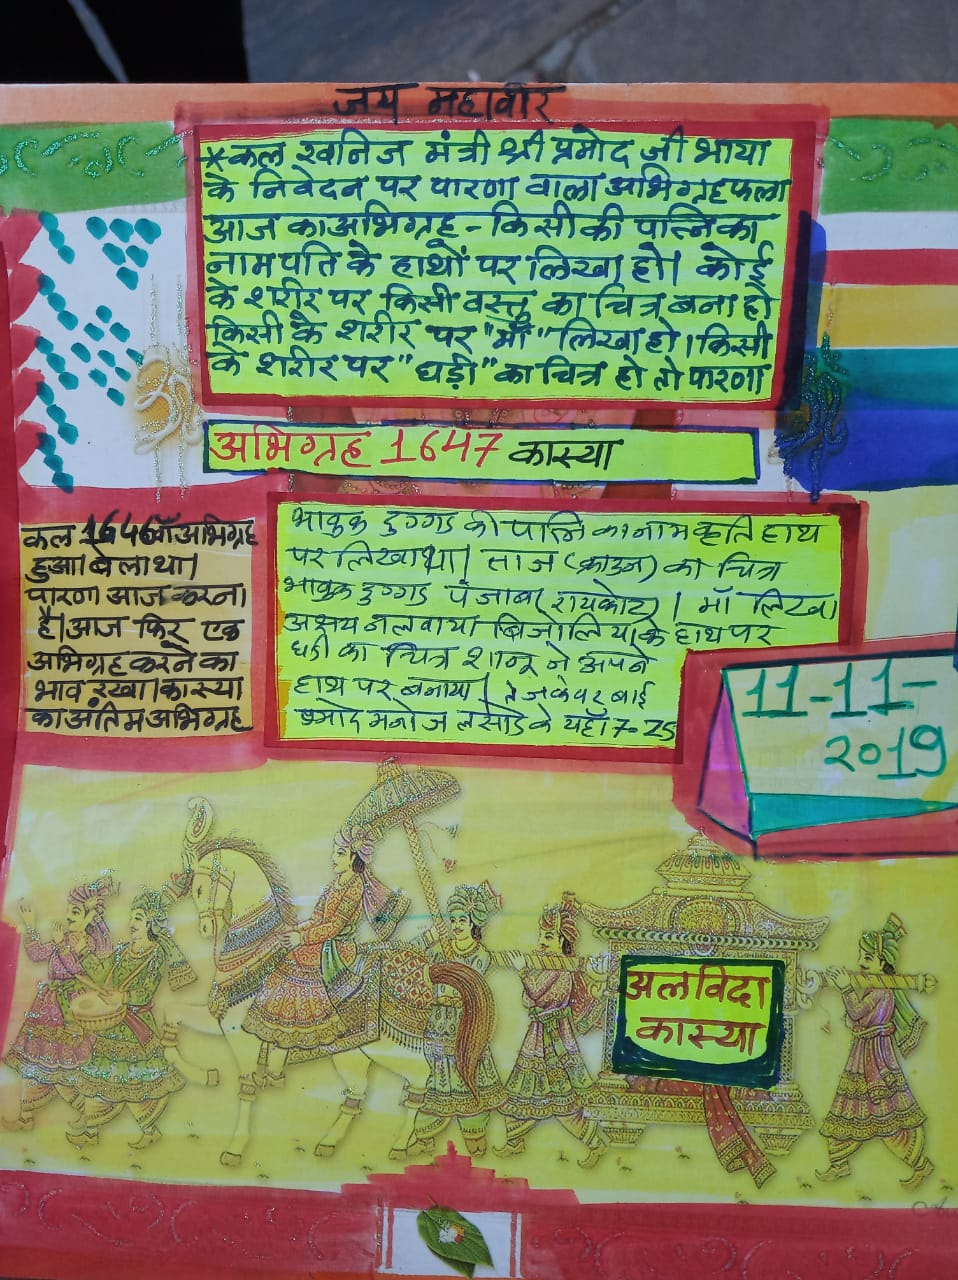 जय महावीर
*कल खनिज मंत्री श्री प्रमोद जी भाया
के निवेदन पर पारणा वाला अभिग्रह फला
आज का अभिग्रह - किसी की पत्नि का
नाम पति के हाथों पर लिखा हो। कोई
के शरीर पर किसी वस्तु का चित्र बना हो
किसी के शरीर पर "माँ" लिखा हो। किसी
के शरीर पर "घड़ी" का चित्र हो तो पारणा
अभिग्रह 1647 कास्या
कल 1646वाँ अभिग्रह
हुआ। बेला था।
पारणा आज करना
है। आज फिर एक
अभिग्रह करने का
भाव रखा। कास्या
का अंतिम अभिग्रह
भावुक दुग्गड की पत्नि का नाम कृति हाथ
पर लिखा था। ताज (क्राउन) का चित्र
भावुक दुग्गड पंजाब (रायकोट)। माँ लिखा
अक्षय नलवाया बिजोलिया के हाथ पर
घडी का चित्र शानू ने अपने
हाथ पर बनाया। तेजकंवर बाई
मनोज के यहाँ 7-25
11-11-
2019
अलविदा
कास्या